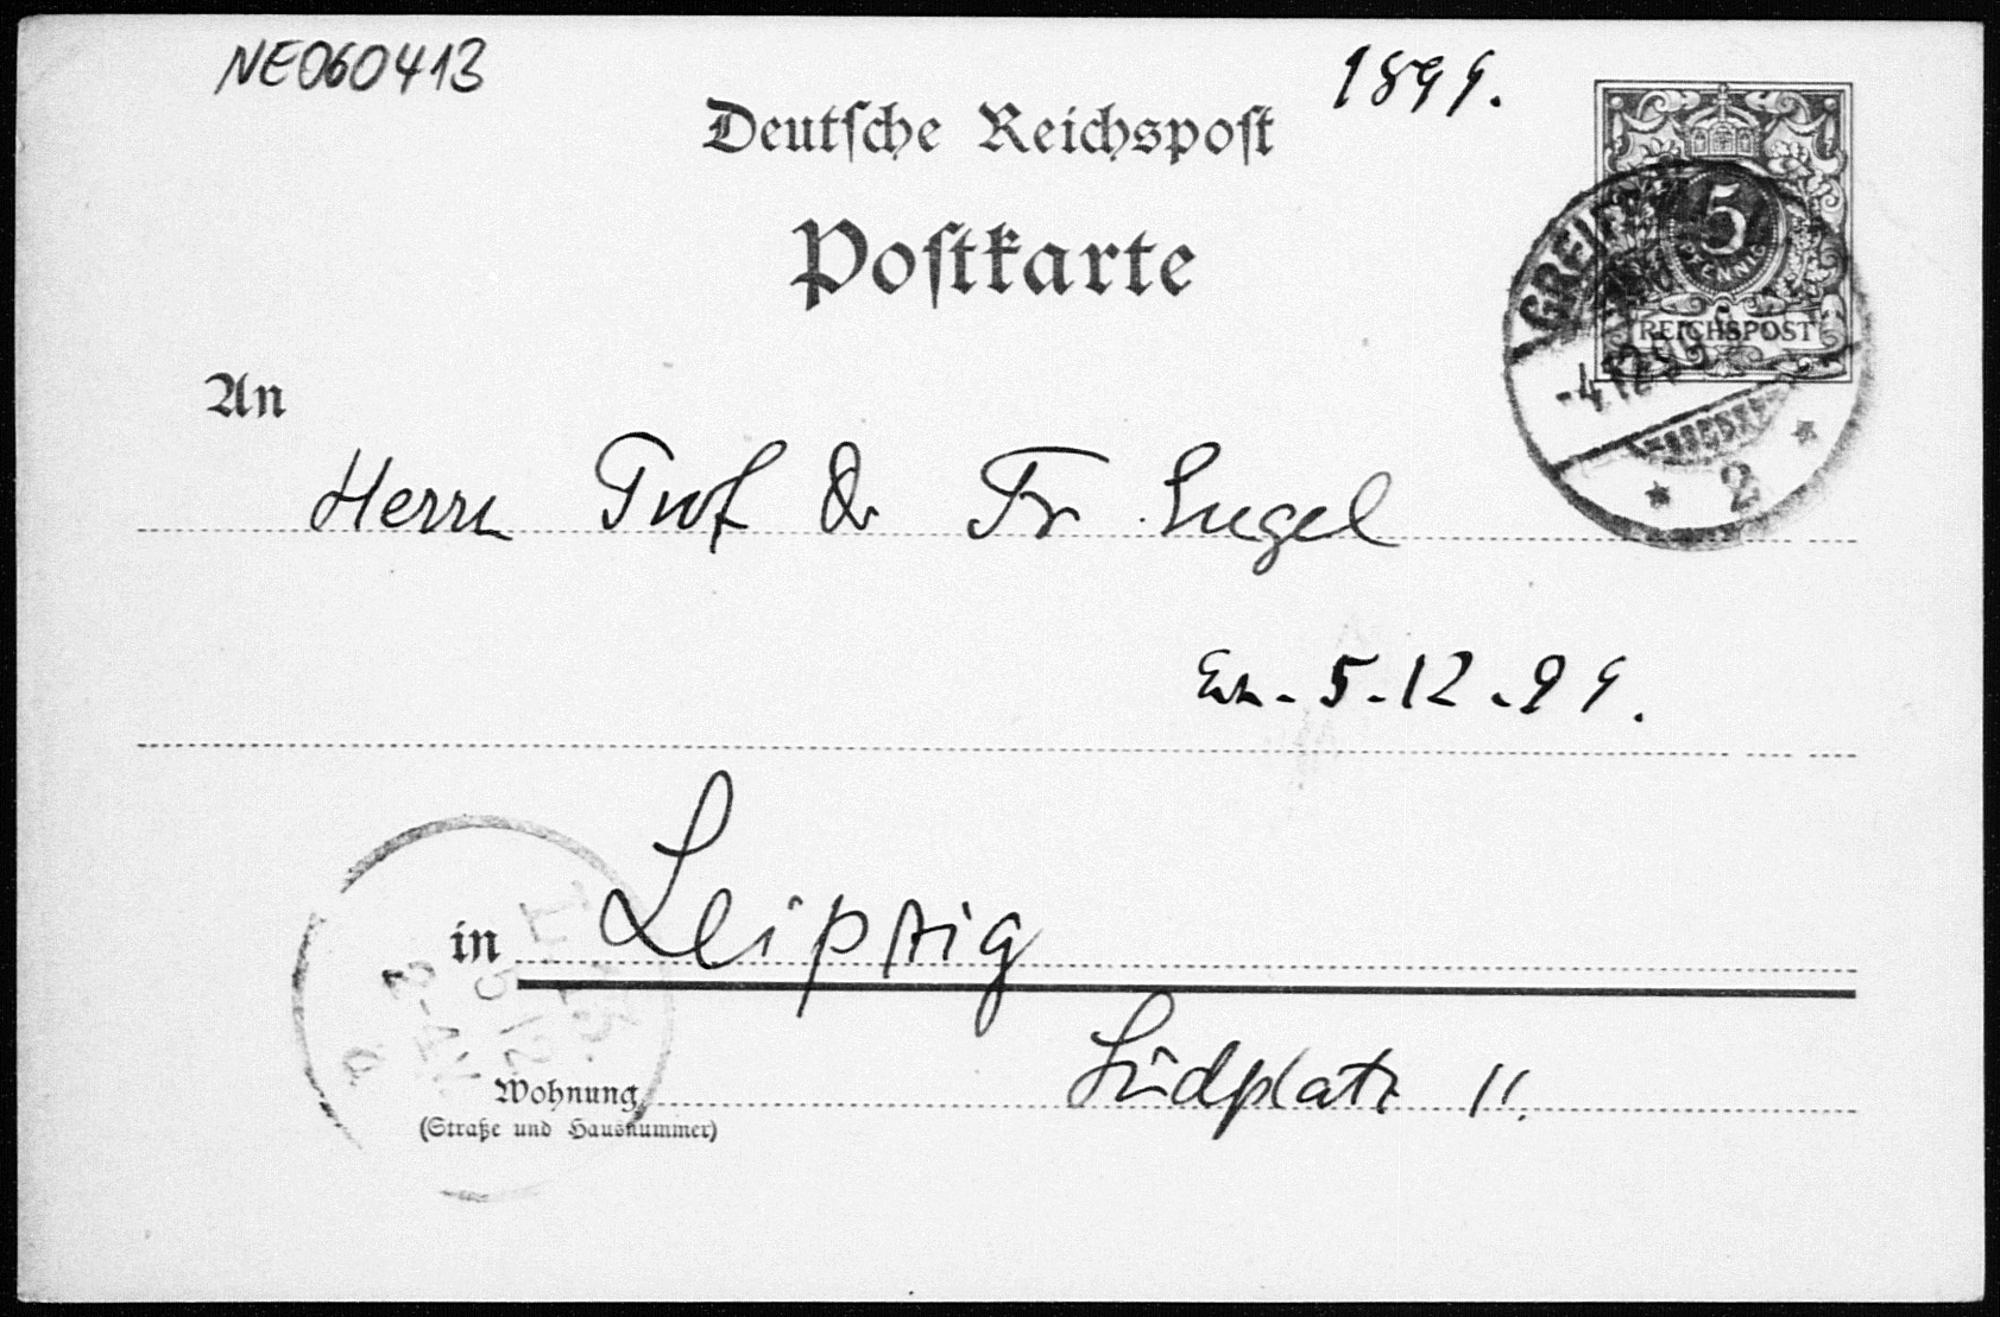 NE060413
1899.
Deutſche Reichspoſt
Poſtkarte
5
PFENNIG
REICHSPOST
-4.12.99
* 2 *
An
Herrn Prof Dr Fr Engel
5-12-99.
in Leipzig
L.
13.
5 12
2-
a
Wohnung Südplatz 11.
(Straße und Hausnummer)